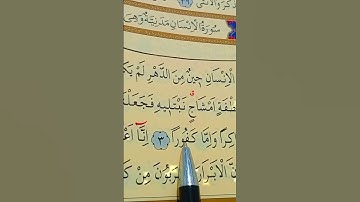 ذكر والانثى ﴿٣٩﴾
سُورَةُ الْاِنْسَانِ مَدَنِيَّةٌ وَهِىَ
الْاِنْسَانِ حٖينٌ مِنَ الدَّهْرِ لَمْ
نُطْفَةٍ اَمْشَاجٍ نَبْتَلٖيهِ فَجَعَلْنَا
وَاِمَّا كَفُورًا ﴿٣﴾ اِنَّا
الْاَبْرَارَ يَشْرَبُونَ مِنْ